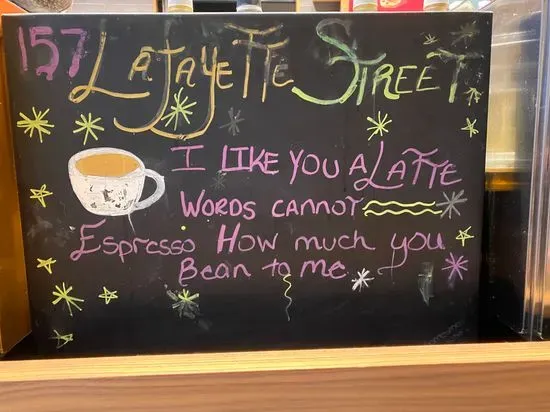 157 Lafayette Street
I LIKE YOU A LATTE
WORDS CANNOT
Espresso How much you
Bean to me